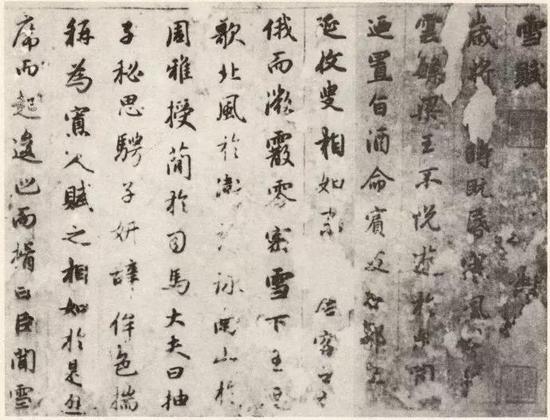 雪賦
歲將 時既昏寒風
雲繁梁王不悅遊於兔園
迺置旨酒命賓友召鄒生
延枚叟相如末 居客之
俄而微霰零密雪下王迺
歌北風於衛詩詠南山於
周雅授簡於司馬大夫曰抽
子秘思騁子妍辭侔色揣
稱為寡人賦之相如於是避
席而起逡巡而揖曰臣聞雪